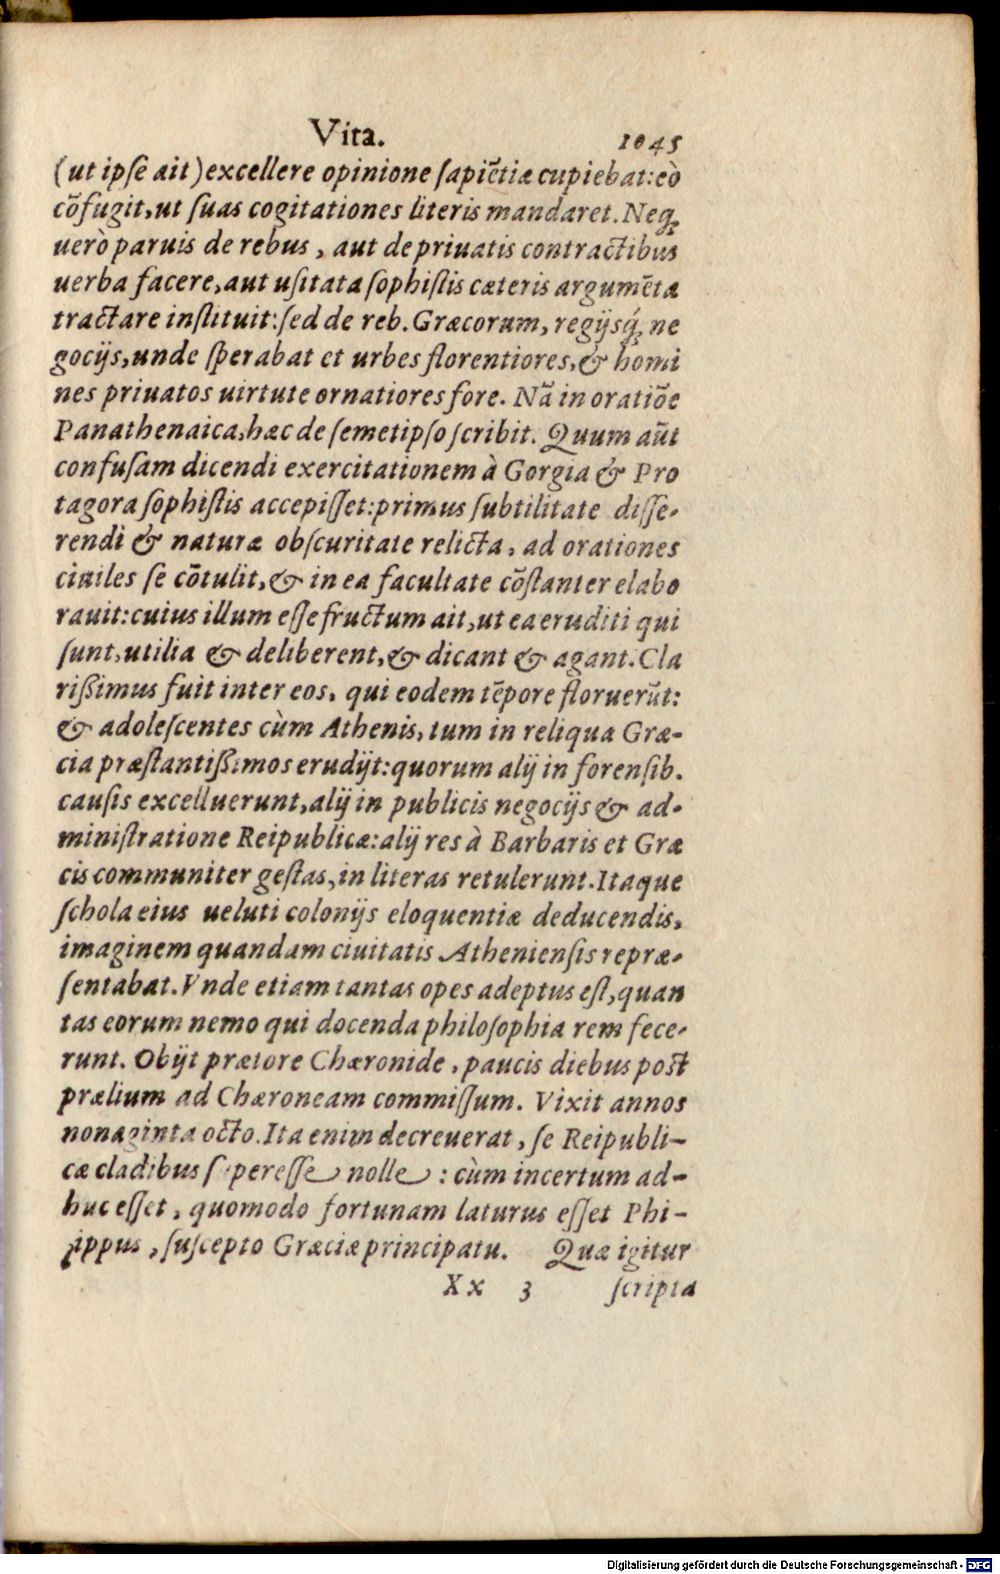 Vita. 1045
(ut ipſe ait) excellere opinione ſapiẽtiæ cupiebat: eò
cõfugit, ut ſuas cogitationes literis mandaret. Neq́;
uerò paruis de rebus, aut de priuatis contractibus
uerba facere, aut uſitata ſophiſtis cæteris argumẽta
tractare inſtituit: ſed de reb. Græcorum, regijsq́; ne
gocijs, unde ſperabat et urbes florentiores, & homi
nes priuatos uirtute ornatiores fore. Nã in oratiõe
Panathenaica, hæc de ſemetipſo ſcribit. Quum aũt
confuſam dicendi exercitationem à Gorgia & Pro
tagora ſophiſtis accepiſſet: primus ſubtilitate diſſe-
rendi & naturæ obſcuritate relicta, ad orationes
ciuiles ſe cõtulit, & in ea facultate cõſtanter elabo
rauit: cuius illum eſſe fructum ait, ut ea eruditi qui
ſunt, utilia & deliberent, & dicant & agant. Cla
rißimus fuit inter eos, qui eodem tẽpore floruerũt:
& adoleſcentes cùm Athenis, tum in reliqua Græ-
cia præſtantißimos erudijt: quorum alij in forenſib.
cauſis excelluerunt, alij in publicis negocijs & ad-
miniſtratione Reipublicæ: alij res à Barbaris et Græ
cis communiter geſtas, in literas retulerunt. Itaque
ſchola eius ueluti colonijs eloquentiæ deducendis,
imaginem quandam ciuitatis Athenienſis repræ-
ſentabat. Vnde etiam tantas opes adeptus eſt, quan
tas eorum nemo qui docenda philoſophia rem fece-
runt. Obijt prætore Chæronide, paucis diebus post
prælium ad Chæroneam commiſſum. Vixit annos
nonaginta octo. Ita enim decreuerat, ſe Reipubli-
cæ cladibus ſupereſſe nolle: cùm incertum ad-
huc eſſet, quomodo fortunam laturus eſſet Phi-
lippus, ſuſcepto Græciæ principatu. Quæ igitur
Xx 3 ſcripta
Digitalisierung gefördert durch die Deutsche Forschungsgemeinschaft - DFG